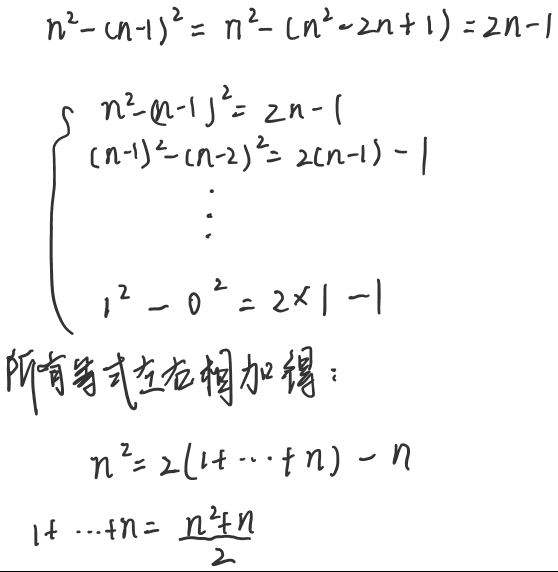 n²-(n-1)²= n²-(n²-2n+1)=2n-1
n²-(n-1)²=2n-1
(n-1)²-(n-2)²=2(n-1)-1
⋮
1²-0²=2×1-1
所有等式左右相加得：
n²=2(1+⋯+n)-n
1+⋯+n=\frac{n²+n}{2}